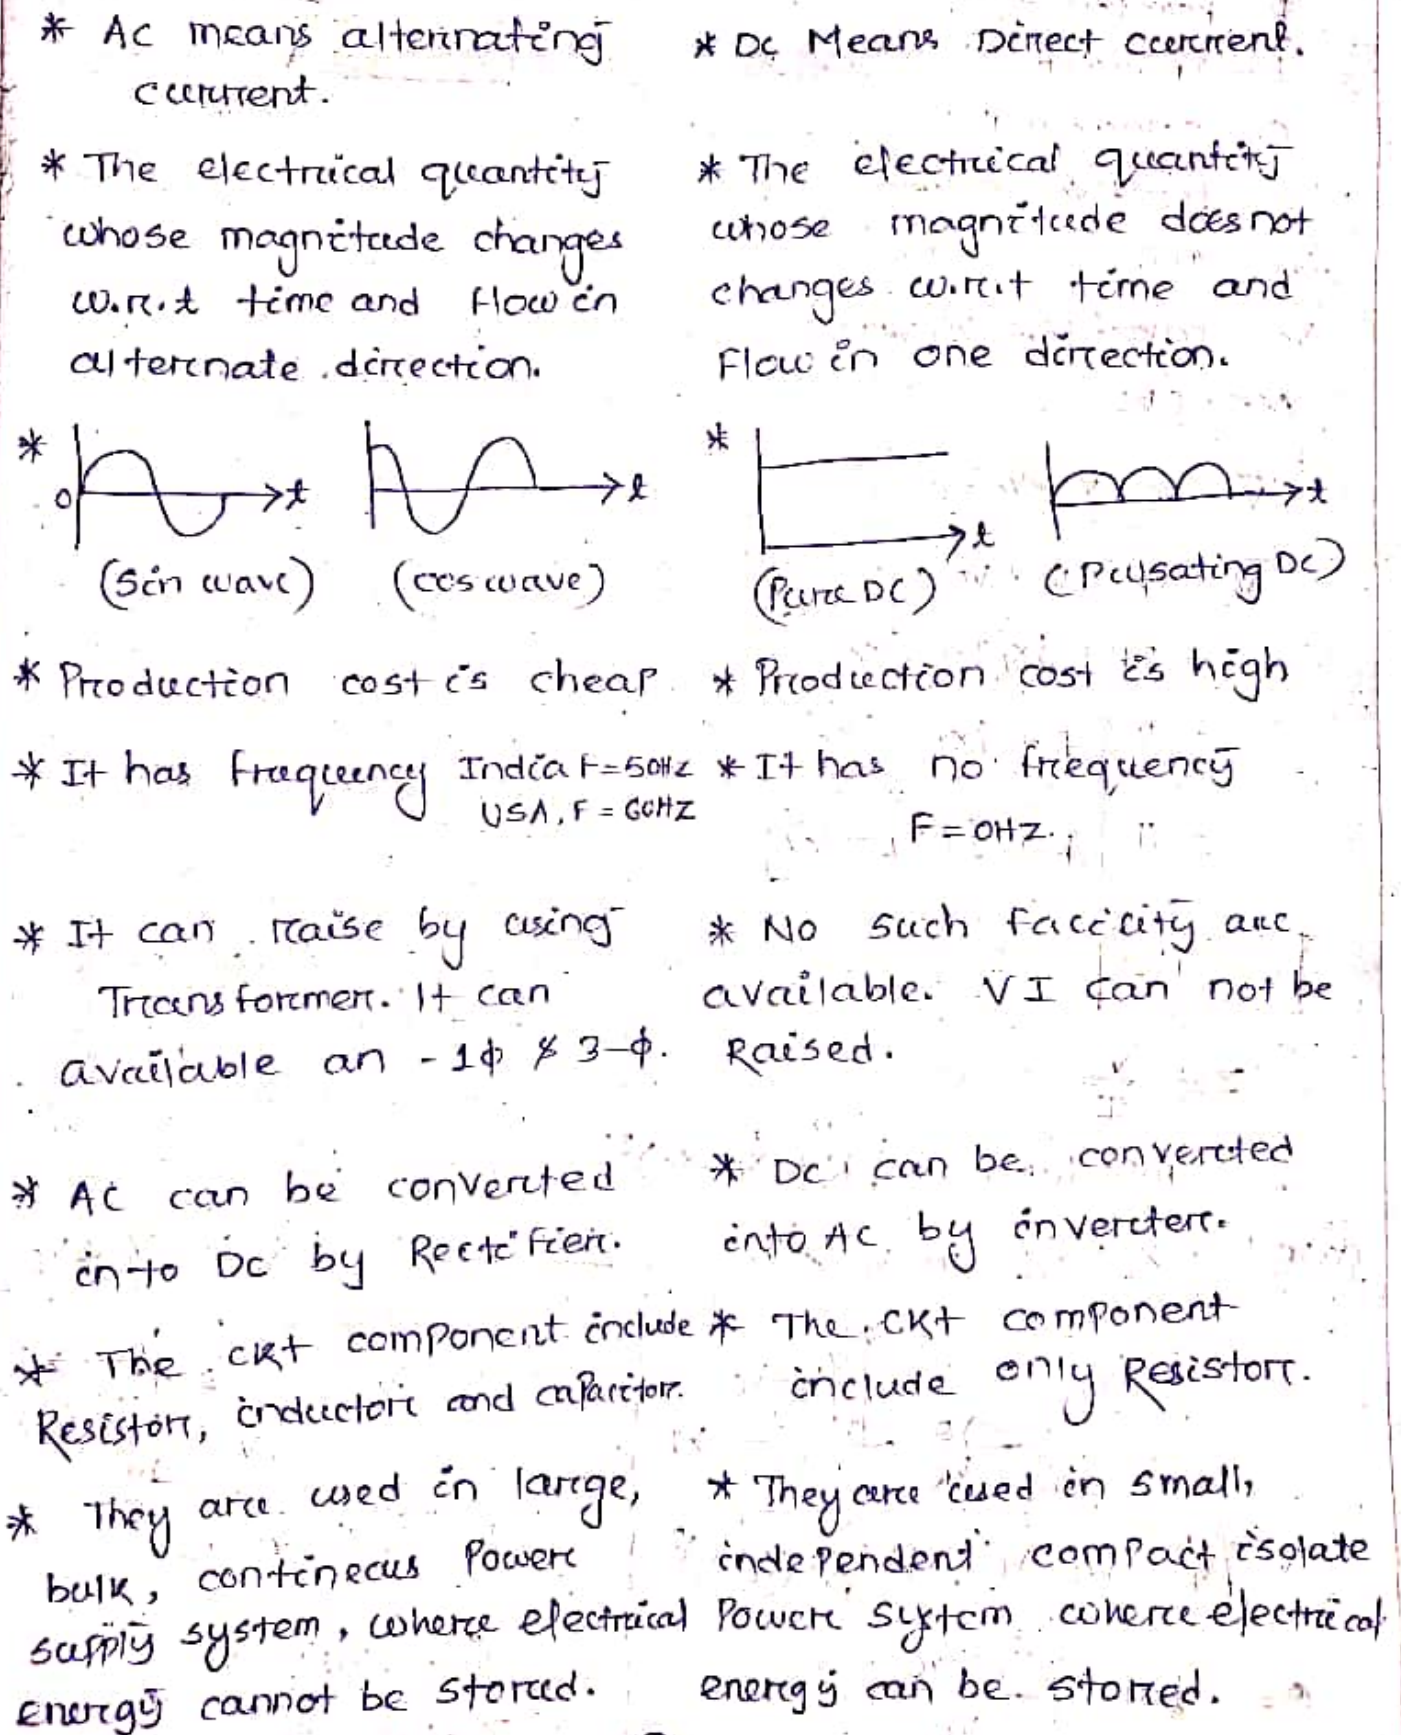 * AC means alternating
current.
* The electrical quantity
whose magnitude changes
w.r.t time and flow in
alternate direction.
*
0
t
t
(Sin wave)
(cos wave)
* Production cost is cheap
* It has frequency India F=50Hz
USA, F = 60HZ
* It can raise by using
Transformer. It can
available an - 1ϕ & 3-ϕ.
* AC can be converted
into Dc by Rectifier.
* The ckt component include
Resistor, inductor and capacitor.
* They are used in large,
bulk, contineous Power
supply system, where electrical
energy cannot be stored.
* Dc Means Direct current.
* The electrical quantity
whose magnitude does not
changes w.r.t time and
Flow in one direction.
*
t
t
(Pure DC)
(Pulsating DC)
* Production cost is high
* It has no frequency
F=0HZ.
* No such facility are
available. VI can not be
Raised.
* Dc can be converted
into AC by inverter.
* The ckt component
include only Resistor.
* They are used in small,
independent compact isolate
Power system where electrical
energy can be stored.